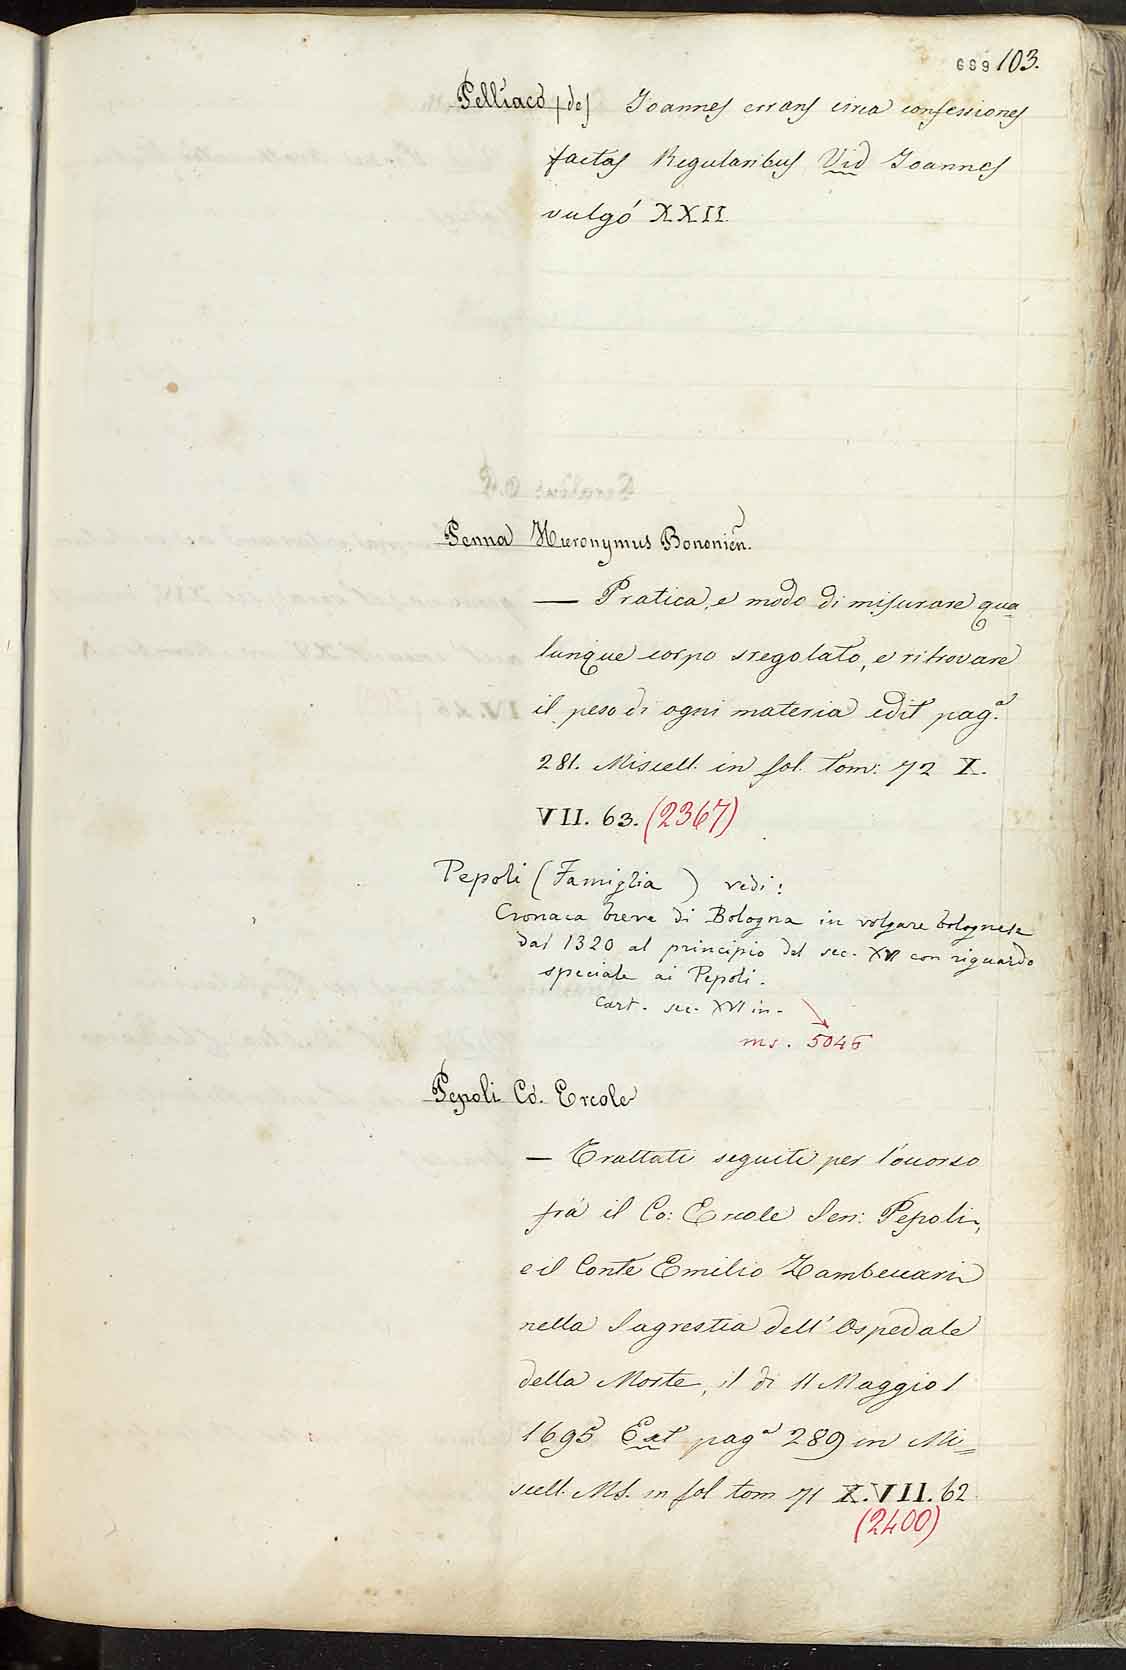 689 103.
Pelliaco (de) Joannes errans circa confessiones
factas Regularibus Vid Joannes
vulgó XXII.
Penna Hieronymus Bononien.
— Pratica, e modo di misurare qua
lunque corpo sregolato, e ritrovare
il peso di ogni materia edit pag.ª
281. Miscell. in fol. tom: 72 X.
VII. 63. (2367)
Pepoli (Famiglia) vedi:
Cronaca breve di Bologna in volgare bolognese
dal 1320 al principio del sec. XVI con riguardo
speciale ai Pepoli.
Cart. sec. XVI in.
ms. 5046
Pepoli Co. Ercole
— Trattati seguiti per l'occorso
frà il Co: Ercole Sen: Pepoli,
e il Conte Emilio Zambeccari
nella Sagrestia dell'Ospedale
della Morte, il di 11 Maggio
1695 Ext pag.ª 289 in Mi=
scell. MS. in fol tom 71 X.VII.62
(2400)